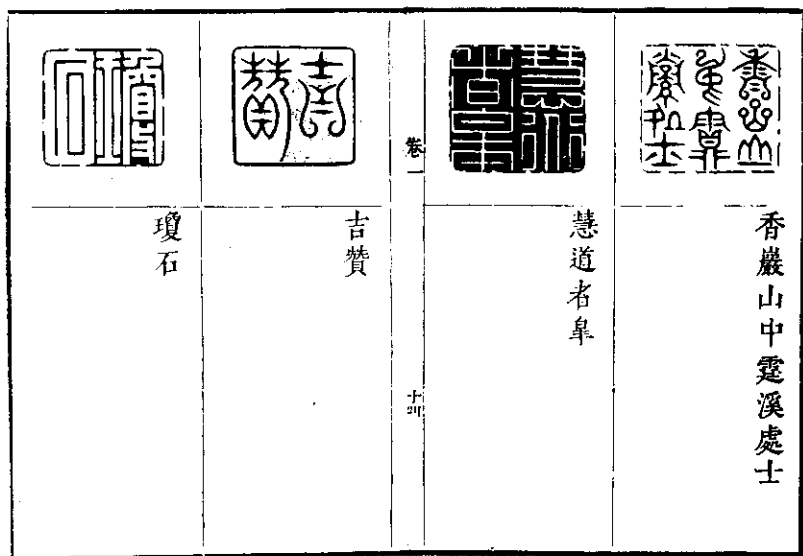 香巖山中霆溪處士
慧道者皐
卷一
十四
吉贊
瓊石